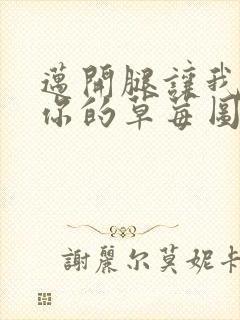 邁開腿讓我
你的草莓圖
謝麗尔莫妮卡